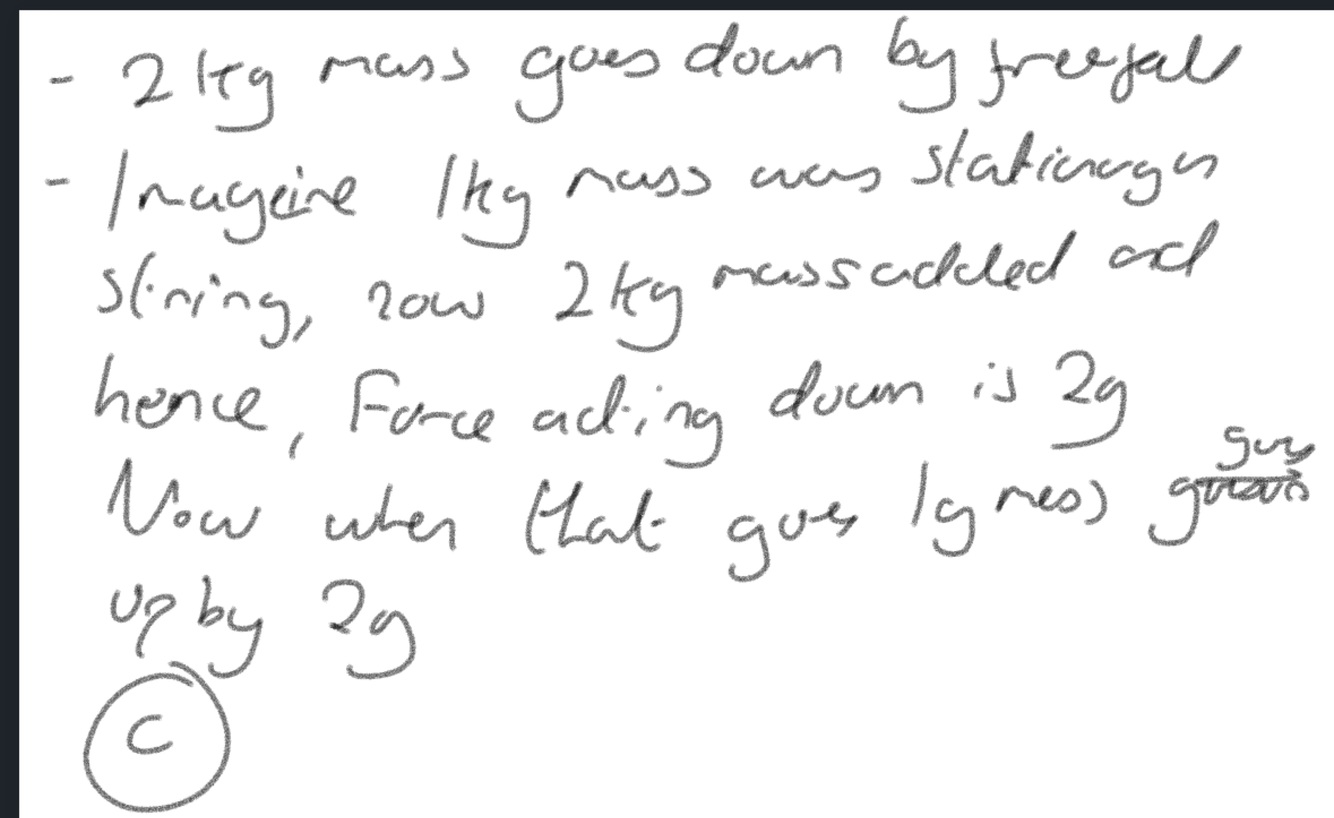 - 2kg mass goes down by freefall
- Imageine 1kg mass was stationary on
string, now 2kg mass added ad
hence, Force acting down is 2g
Now when that goes 1g mess goes
up by 2g
C